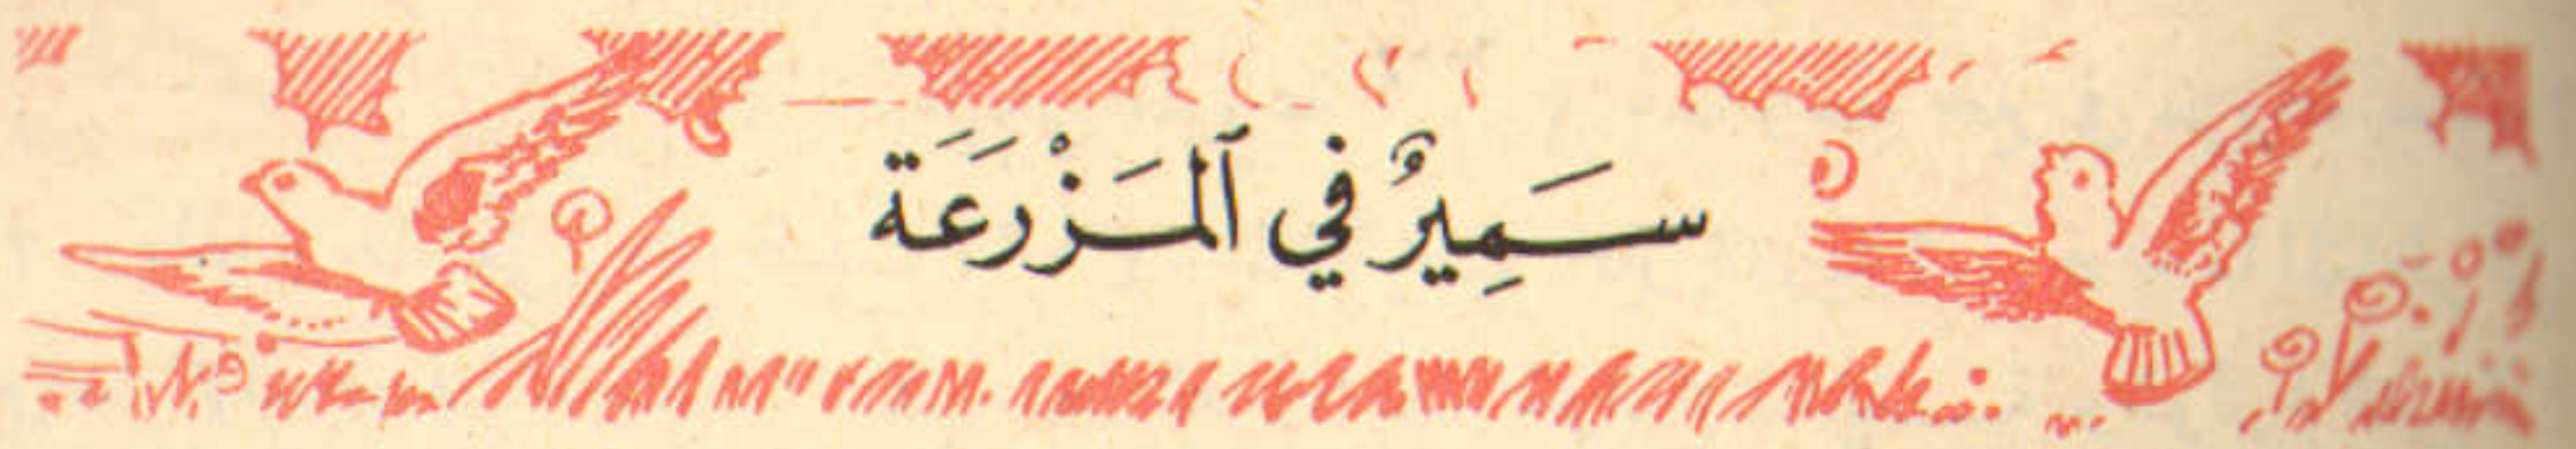 سَمِيرٌ فِي ٱلمَزْرَعَة